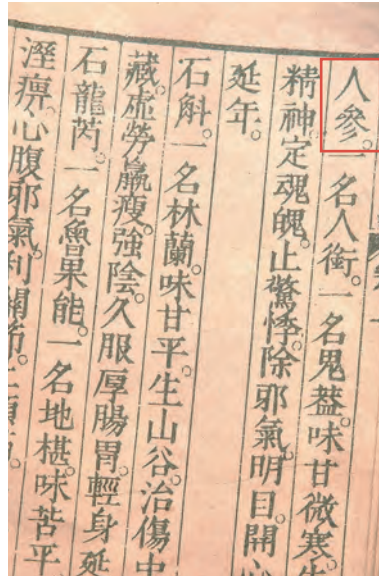 人參。一名人銜。一名鬼葢。味甘微寒。生
精神定魂魄。止驚悸。除邪氣。明目。開心
延年。
石斛。一名林蘭。味甘平。生山谷。治傷中
藏。虛勞羸瘦。強陰。久服厚腸胃。輕身延
石龍芮。一名魯果能。一名地椹。味苦平
溼痹。心腹邪氣。利關節。